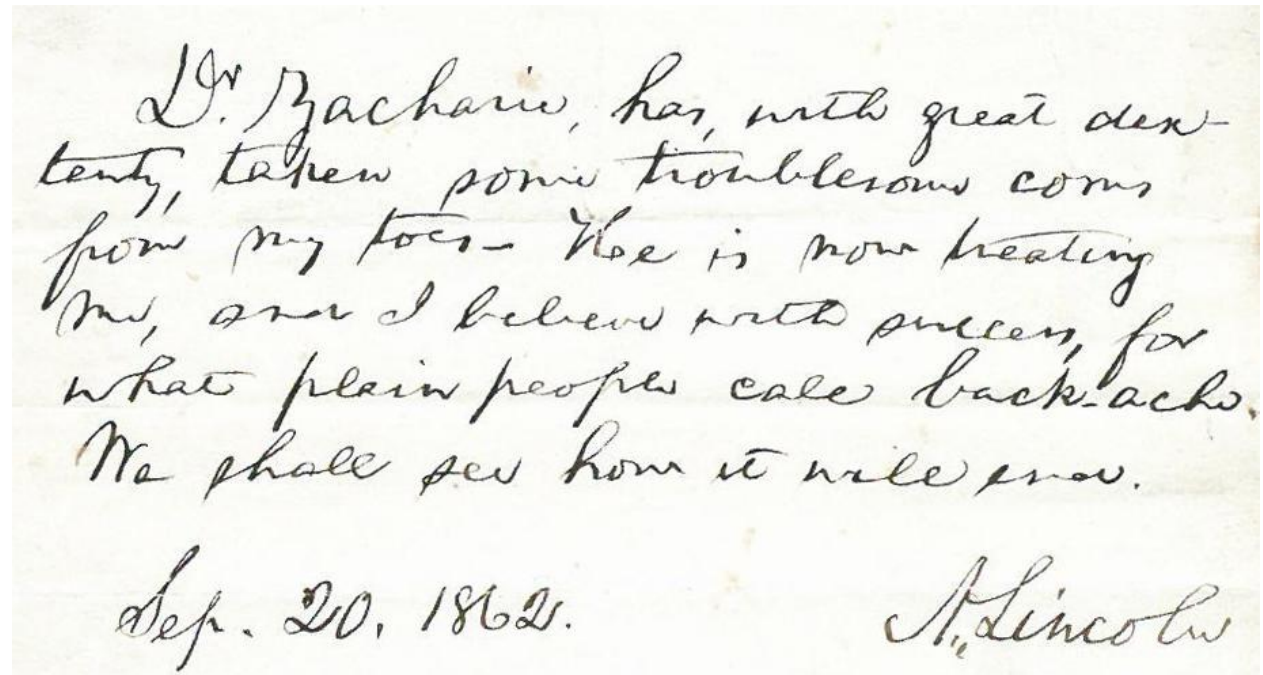 Dr. Zacharie, has, with great dex-
terity, taken some troublesome corns
from my toes— He is now treating
me, and I believe with success, for
what plain people call back-ache.
We shall see how it will end.
Sep. 20, 1862.
A. Lincoln